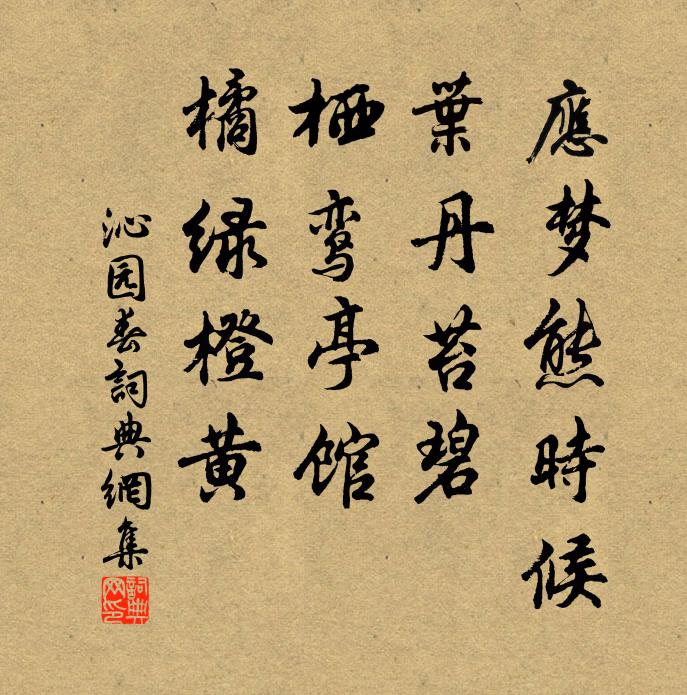 應梦熊時候
葉丹苔碧
栖鸾亭馆
橘绿橙黄
沁园春詞典網集
詞典网印